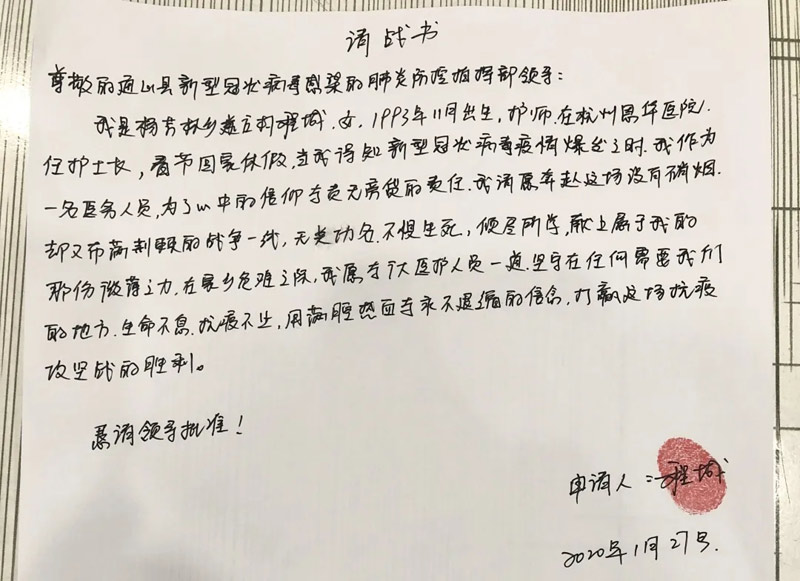 请战书
尊敬的通山县新型冠状病毒感染的肺炎防控指挥部领导：
我是杨芳林乡赵立村程城，女，1993年11月出生，护师，在杭州恩华医院
任护士长，春节回家休假，当我得知新型冠状病毒疫情爆发之时，我作为
一名医务人员，为了心中的信仰与责无旁贷的责任，我请愿奔赴这场没有硝烟，
却又布满荆棘的战争一线，无关功名，不惧生死，倾尽所学，献上属于我的
那份微薄之力，在家乡危难之际，我愿与广大医护人员一道，坚守在任何需要我们
的地方，生命不息，抗疫不止，用满腔热血与永不退缩的信念，打赢这场抗疫
攻坚战的胜利。
恳请领导批准！
申请人：程城
2020年1月27号.